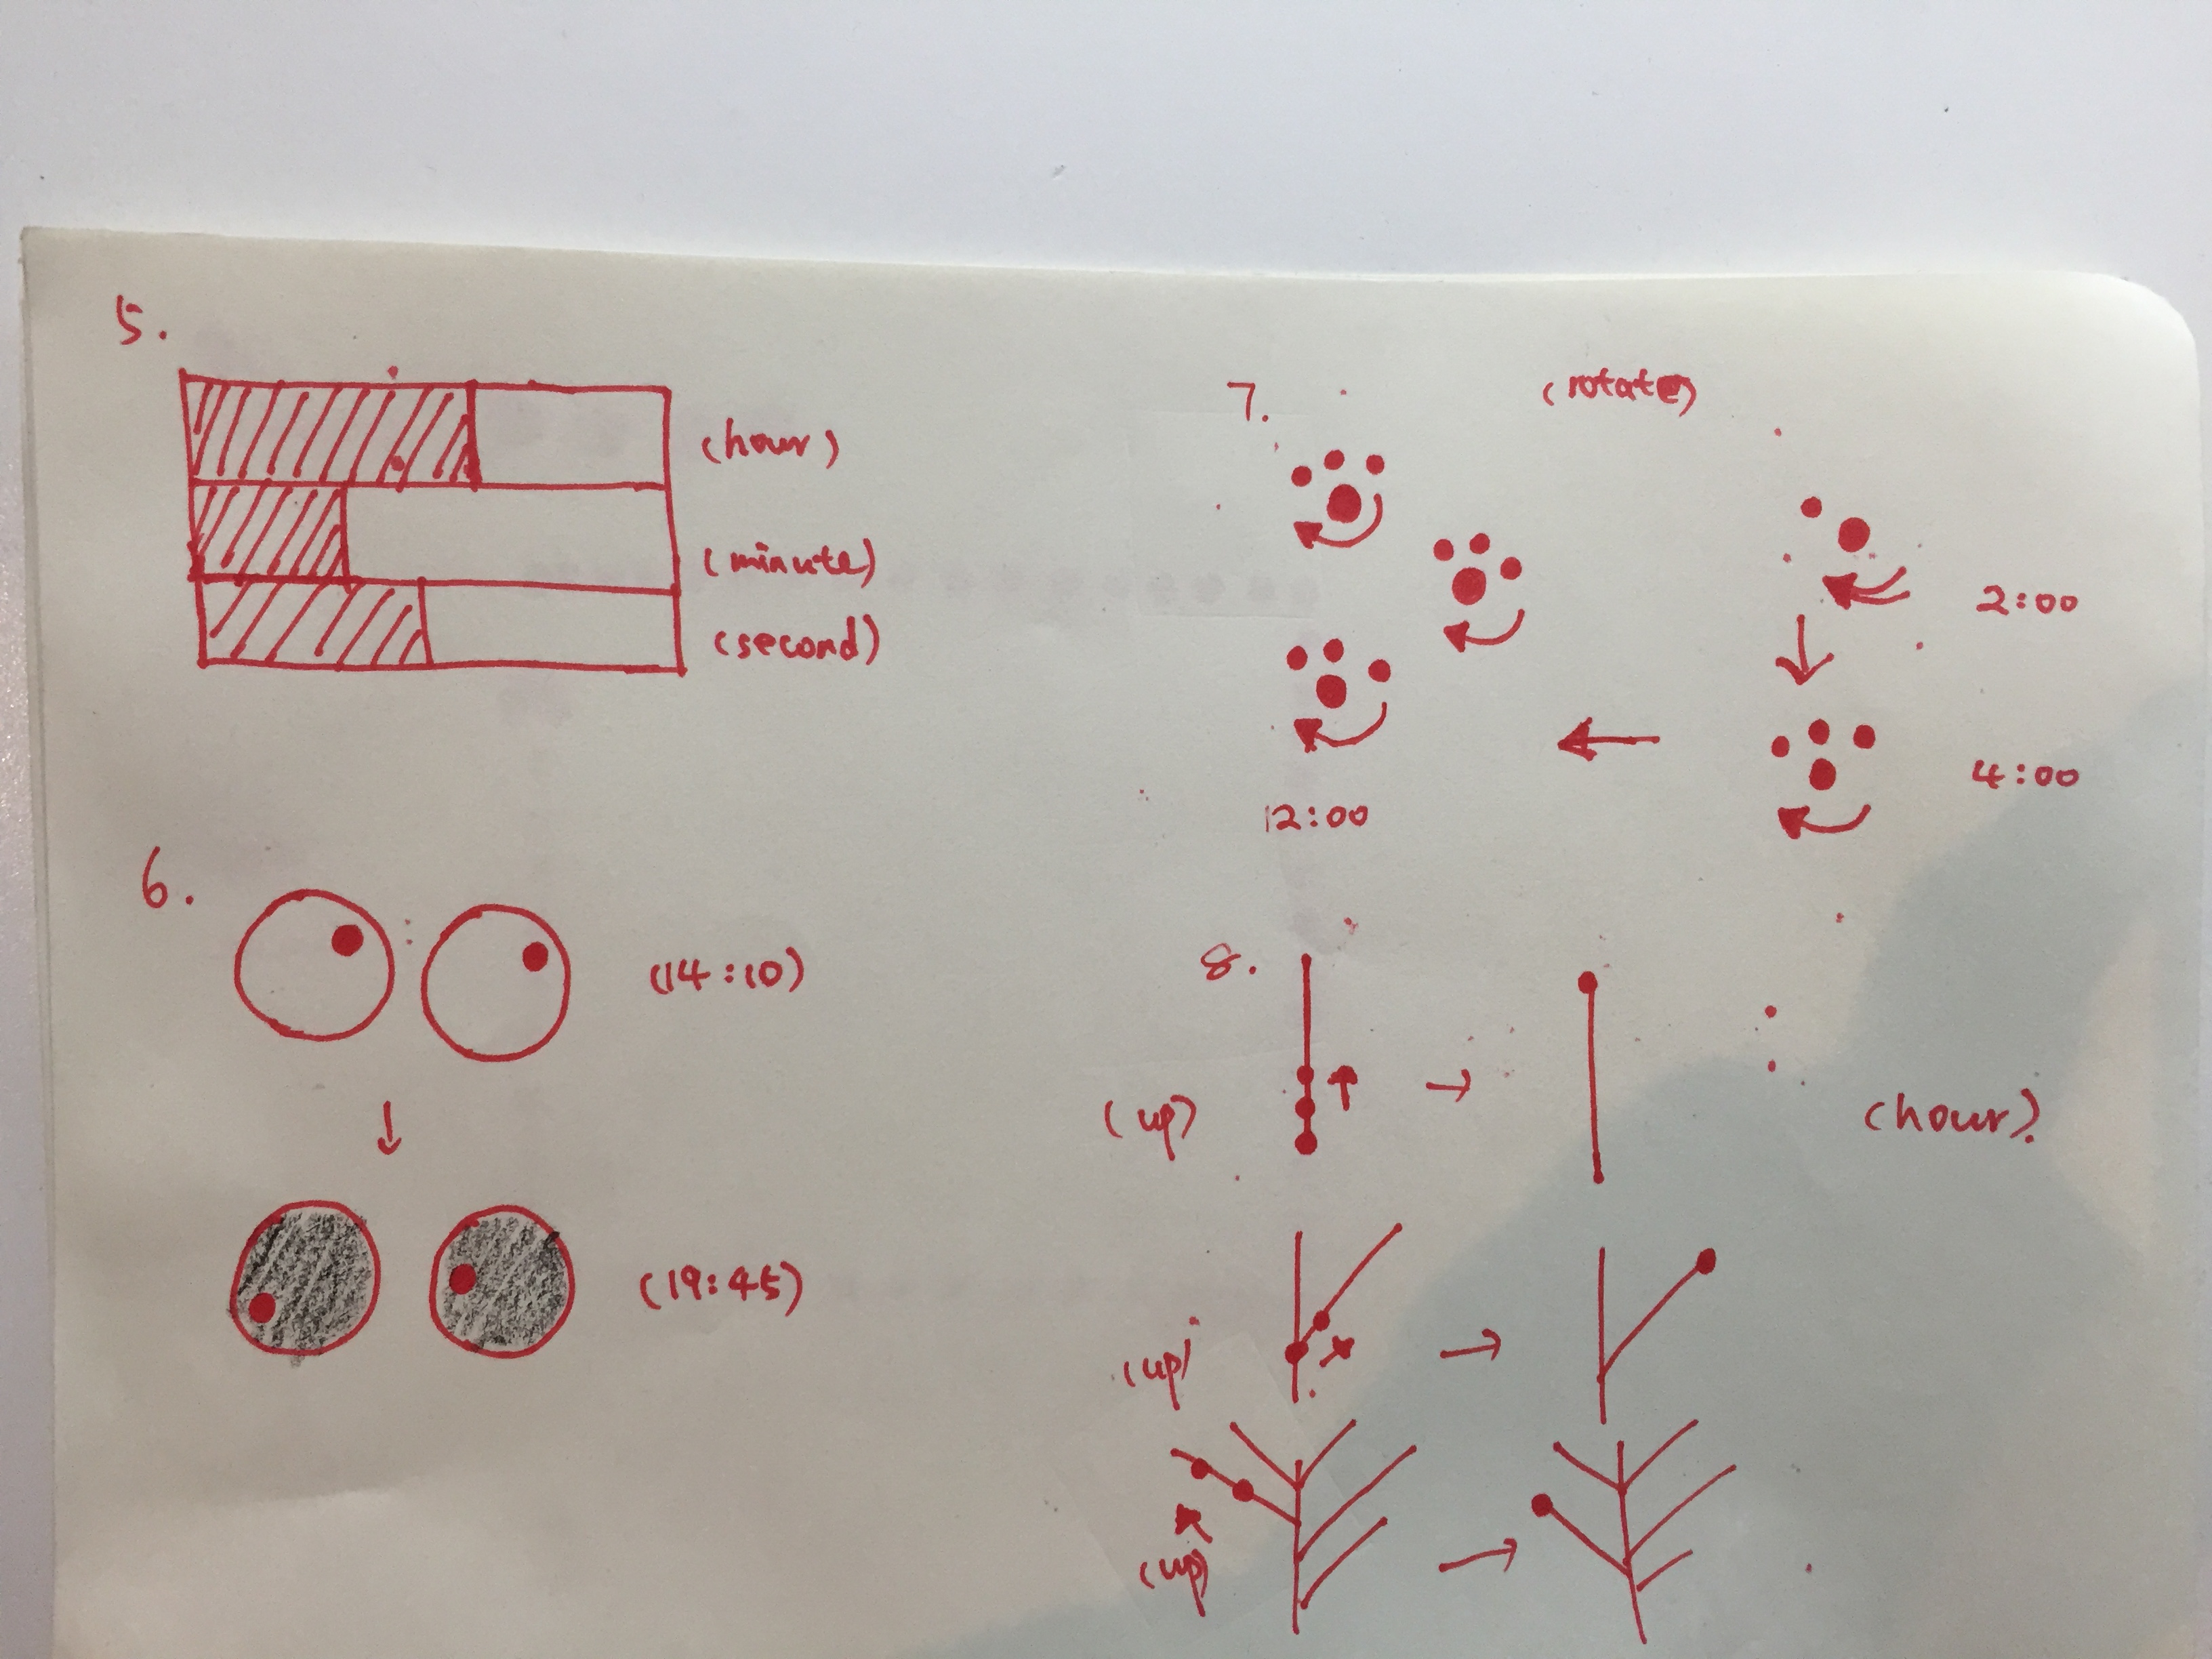 5.
(hour)
(minute)
(second)
6.
(14:10)
(19:45)
7.
(rotate)
2:00
12:00
4:00
8.
(up)
(hour)
(up)
(up)